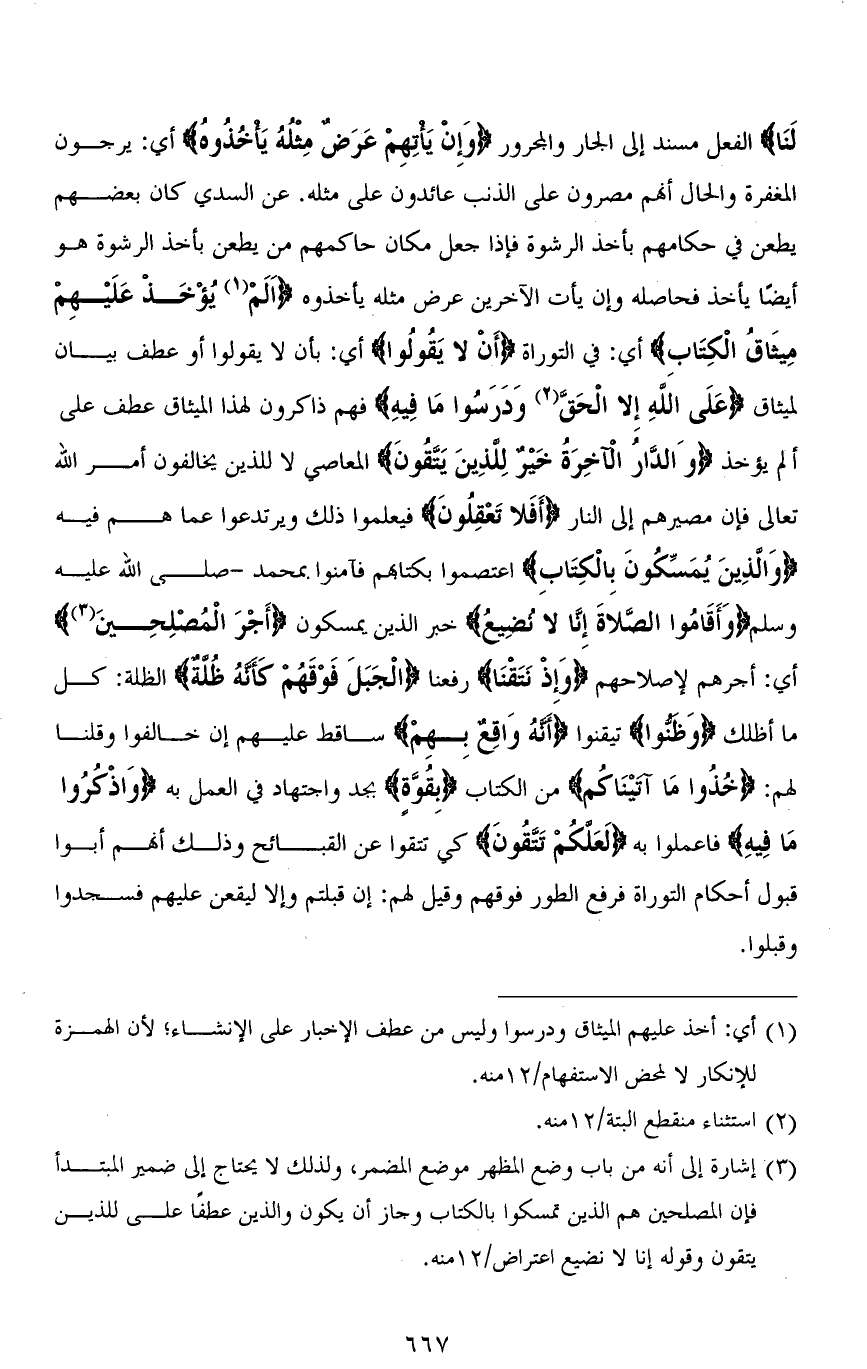 لَنَا﴾ الفعل مسند إلى الجار والمجرور ﴿وَإِنْ يَأْتِهِمْ عَرَضٌ مِثْلُهُ يَأْخُذُوهُ﴾ أي: يرجون
المغفرة والحال أنهم مصرون على الذنب عائدون على مثله. عن السدي كان بعضهم
يطعن في حكامهم بأخذ الرشوة فإذا جعل مكان حاكمهم من يطعن بأخذ الرشوة هو
أيضًا يأخذ فحاصله وإن يأت الآخرين عرض مثله يأخذوه ﴿أَلَمْ(١) يُؤْخَذْ عَلَيْهِمْ
مِيثَاقُ الْكِتَابِ﴾ أي: في التوراة ﴿أَنْ لا يَقُولُوا﴾ أي: بأن لا يقولوا أو عطف بيان
لميثاق ﴿عَلَى اللَّهِ إِلا الْحَقَّ(٢) وَدَرَسُوا مَا فِيهِ﴾ فهم ذاكرون لهذا الميثاق عطف على
ألم يؤخذ ﴿وَالدَّارُ الْآخِرَةُ خَيْرٌ لِلَّذِينَ يَتَّقُونَ﴾ المعاصي لا للذين يخالفون أمر الله
تعالى فإن مصيرهم إلى النار ﴿أَفَلا تَعْقِلُونَ﴾ فيعلموا ذلك ويرتدعوا عما هم فيه
﴿وَالَّذِينَ يُمَسِّكُونَ بِالْكِتَابِ﴾ اعتصموا بكتابهم فآمنوا بمحمد -صلى الله عليه
وسلم﴿وَأَقَامُوا الصَّلاةَ إِنَّا لا نُضِيعُ﴾ خبر الذين يمسكون ﴿أَجْرَ الْمُصْلِحِينَ(٣)﴾
أي: أجرهم لإصلاحهم ﴿وَإِذْ نَتَقْنَا﴾ رفعنا ﴿الْجَبَلَ فَوْقَهُمْ كَأَنَّهُ ظُلَّةٌ﴾ الظلة: كل
ما أظلك ﴿وَظَنُّوا﴾ تيقنوا ﴿أَنَّهُ وَاقِعٌ بِهِمْ﴾ ساقط عليهم إن خالفوا وقلنا
لهم: ﴿خُذُوا مَا آتَيْنَاكُم﴾ من الكتاب ﴿بِقُوَّةٍ﴾ بجد واجتهاد في العمل به ﴿وَاذْكُرُوا
مَا فِيهِ﴾ فاعملوا به ﴿لَعَلَّكُمْ تَتَّقُونَ﴾ كي تتقوا عن القبائح وذلك أنهم أبوا
قبول أحكام التوراة فرفع الطور فوقهم وقيل لهم: إن قبلتم وإلا ليقعن عليهم فسجدوا
وقبلوا.
(١) أي: أخذ عليهم الميثاق ودرسوا وليس من عطف الإخبار على الإنشاء؛ لأن الهمزة
للإنكار لا لمحض الاستفهام/١٢منه.
(٢) استثناء منقطع البتة/١٢منه.
(٣) إشارة إلى أنه من باب وضع المظهر موضع المضمر، ولذلك لا يحتاج إلى ضمير المبتدأ
فإن المصلحين هم الذين تمسكوا بالكتاب وجاز أن يكون والذين عطفًا على للذين
يتقون وقوله إنا لا نضيع اعتراض/١٢منه.
٦٦٧